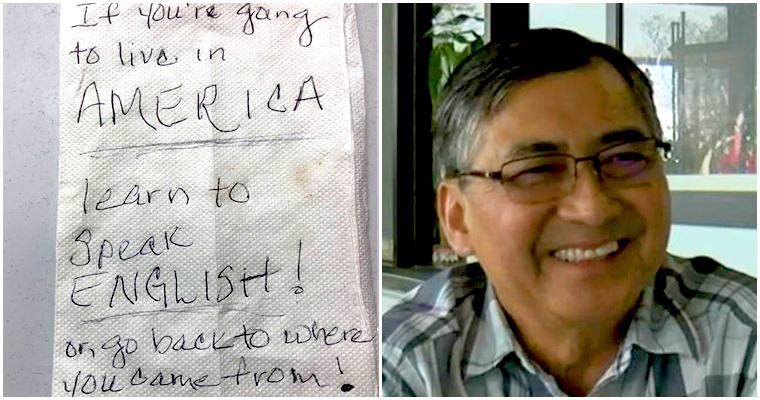 If you're going
to live in
AMERICA
learn to
speak
ENGLISH!
or, go back to where
you came from!